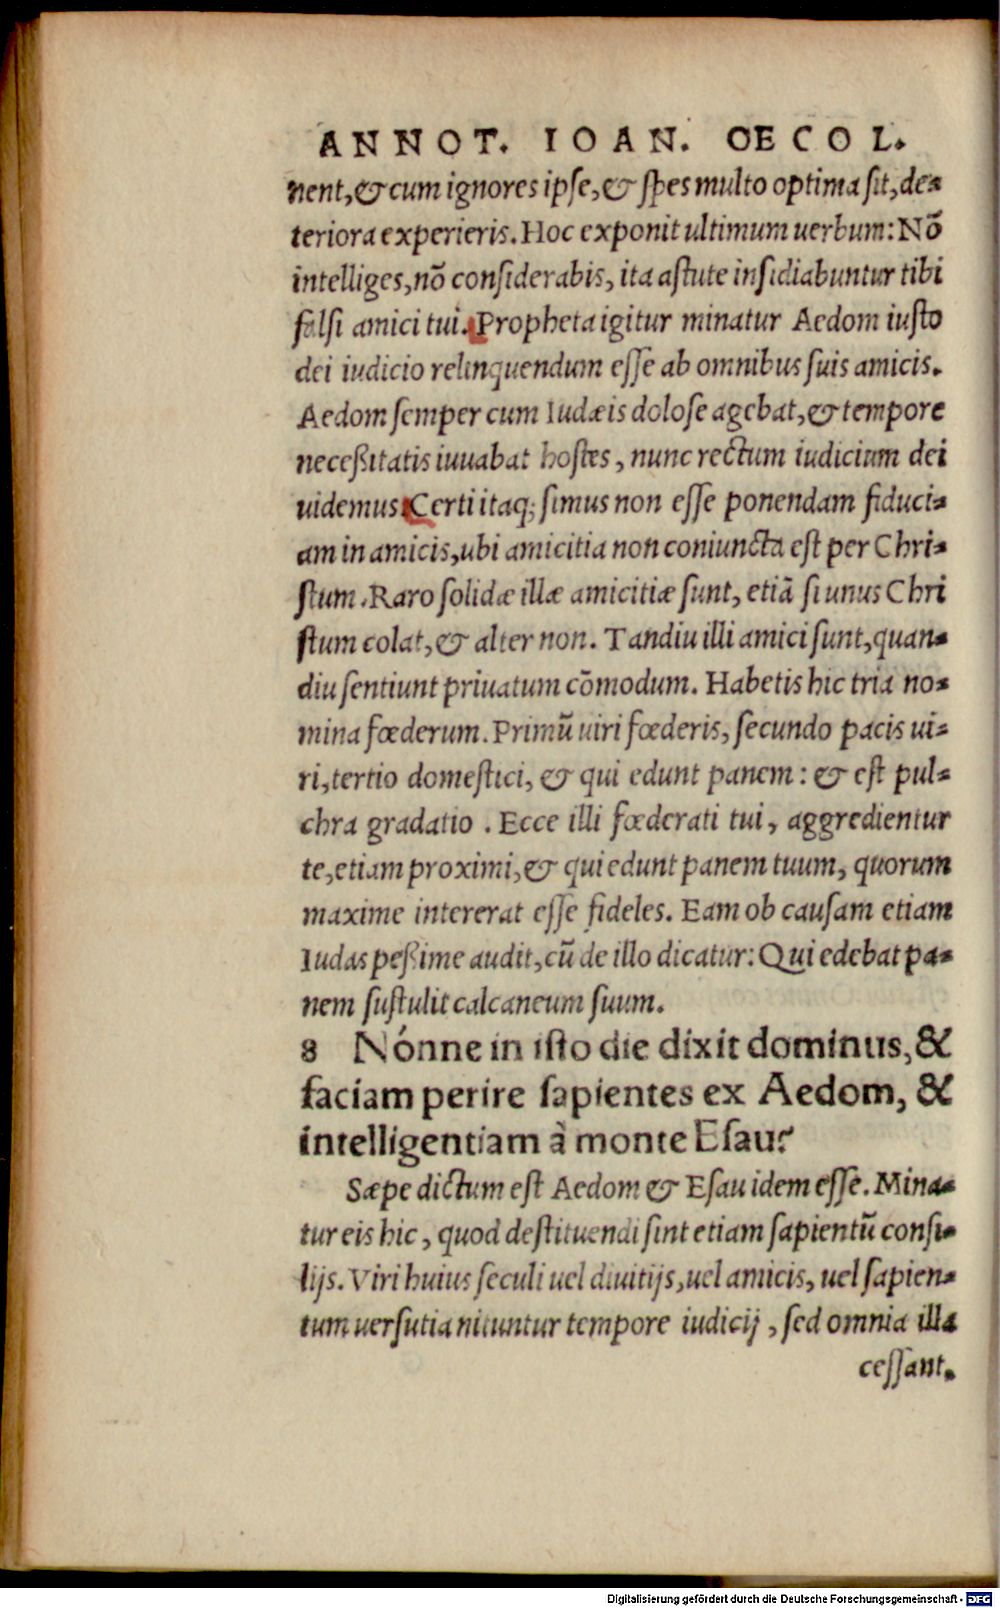 ANNOT. IOAN. OECOL.
nent,& cum ignores ipse,& spes multo optima sit, de-
teriora experieris. Hoc exponit ultimum uerbum: Nõ
intelliges, nõ considerabis, ita astute insidiabuntur tibi
falsi amici tui. Propheta igitur minatur Aedom iusto
dei iudicio relinquendum esse ab omnibus suis amicis.
Aedom semper cum Iudæis dolose agebat,& tempore
neceßitatis iuuabat hostes, nunc rectum iudicium dei
uidemus. Certi itaq; simus non esse ponendam fiduci-
am in amicis, ubi amicitia non coniuncta est per Chri-
stum. Raro solidæ illæ amicitiæ sunt, etiã si unus Chri
stum colat,& alter non. Tandiu illi amici sunt, quan-
diu sentiunt priuatum cõmodum. Habetis hic tria no-
mina fœderum. Primũ uiri fœderis, secundo pacis ui-
ri, tertio domestici, & qui edunt panem: & est pul-
chra gradatio. Ecce illi fœderati tui, aggredientur
te, etiam proximi,& qui edunt panem tuum, quorum
maxime intererat esse fideles. Eam ob causam etiam
Iudas peßime audit, cũ de illo dicatur: Qui edebat pa-
nem sustulit calcaneum suum.
8 Nónne in isto die dixit dominus, &
faciam perire sapientes ex Aedom, &
intelligentiam à monte Esau?
Sæpe dictum est Aedom & Esau idem esse. Mina-
tur eis hic, quod destituendi sint etiam sapientũ consi-
lijs. Viri huius seculi uel diuitijs, uel amicis, uel sapien-
tum uersutia nituntur tempore iudicij, sed omnia illa
cessant.
Digitalisierung gefördert durch die Deutsche Forschungsgemeinschaft - DFG